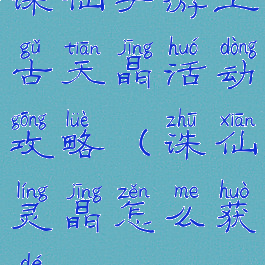 诛仙手游上
gǔ tiān jīng huó dòng
古天晶活动
gōng lüè zhū xiān
攻略（诛仙
líng jīng zěn me huò
灵晶怎么获
dé